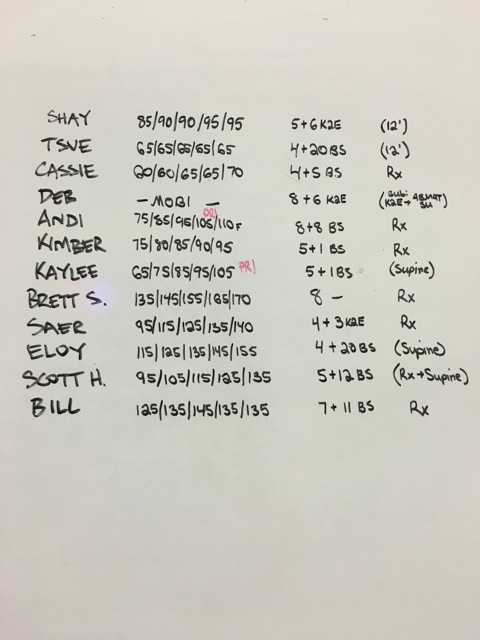 SHAY 85/90/90/95/95 5+6 K2E (12')
TSUE 65/65/65/65/65 4+20 BS (12')
CASSIE 20/60/65/65/70 4+5 BS Rx
DEB - MOBI - 8+6 K2E (SUB: K2E → ABMAT SU)
ANDI 75/85/95/105/110F PR! 8+8 BS Rx
KIMBER 75/80/85/90/95 5+1 BS Rx
KAYLEE 65/75/85/95/105 PR! 5+1 BS (Supine)
BRETT S. 135/145/155/165/170 8 - Rx
SAER 95/115/125/135/140 4+3 K2E Rx
ELOY 115/125/135/145/155 4+20 BS (Supine)
SCOTT H. 95/105/115/125/135 5+12 BS (Rx→Supine)
BILL 125/135/145/135/135 7+11 BS Rx